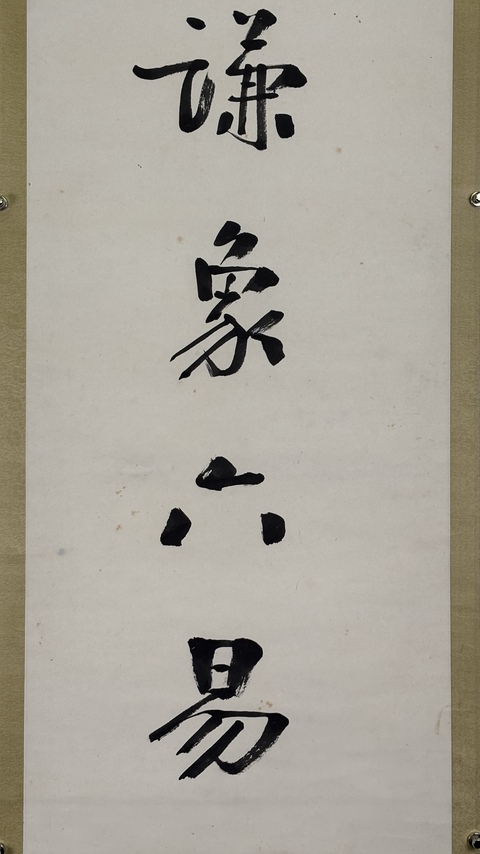 謙象六易